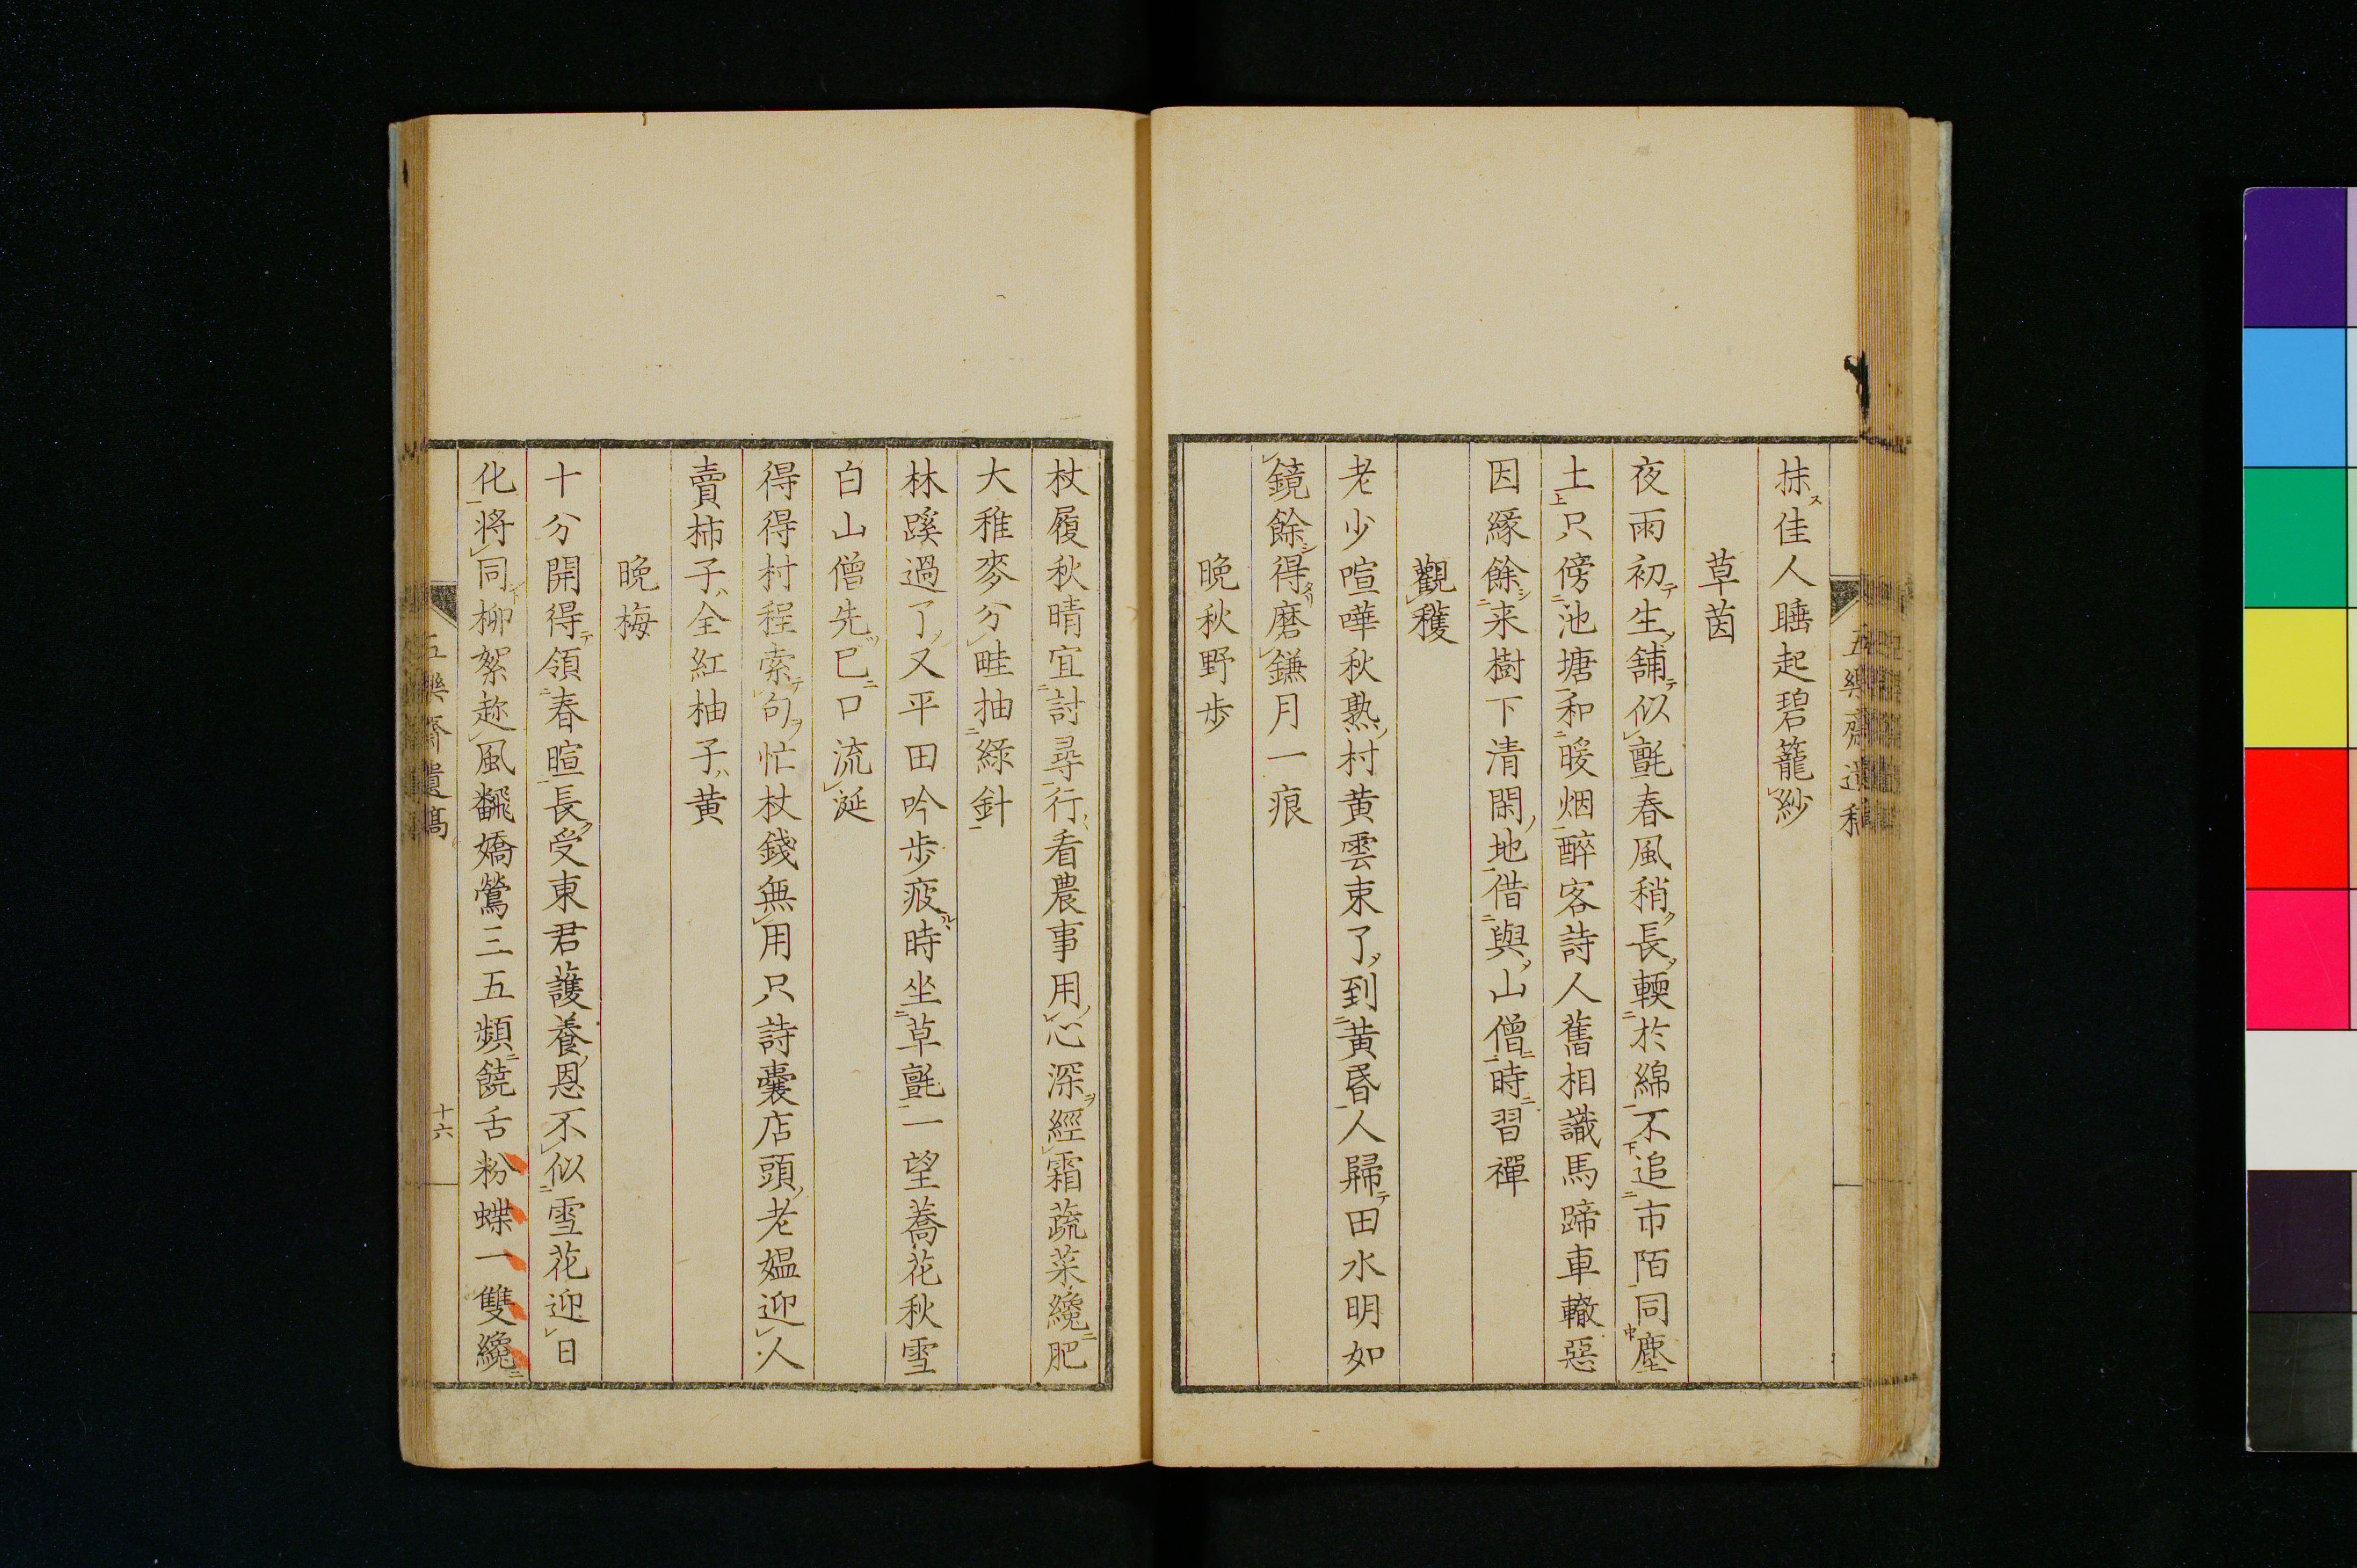 抹ス佳人睡起碧籠紗
草茵
夜雨初テ生ジ舖テ似氈春風稍ク長ク輭於綿不追市陌同塵
土只傍池塘和暖烟醉客詩人舊相識馬蹄車轍惡
因緣餘シ来樹下清閑ノ地借與ヲ山僧ニ時ニ習禪
觀穫
老少喧嘩秋熟ノ村黄雲束了ヲ到黄昏人歸テ田水明如
鏡餘シ得タリ磨鎌月一痕
晩秋野歩
杖履秋晴宜討尋行看農事用ノ心深ヲ經霜蔬菜纔ニ肥
大稚麥分畦抽綠針
林蹊過了ノ又平田吟歩疲ルヽ時坐草氈一望蕎花秋雪
白山僧先ヅ已ニ口流涎
得得村程索テ句ヲ忙杖錢無用只詩囊店頭ノ老媼迎人
賣柿子ハ全紅柚子ハ黄
晩梅
十分開得テ領春暄長ク受東君護養ノ恩不似雪花迎日
化將同柳絮趂風飜嬌鶯三五頻ニ饒舌粉蝶一雙纔ニ
五樂齋遺稿
十六